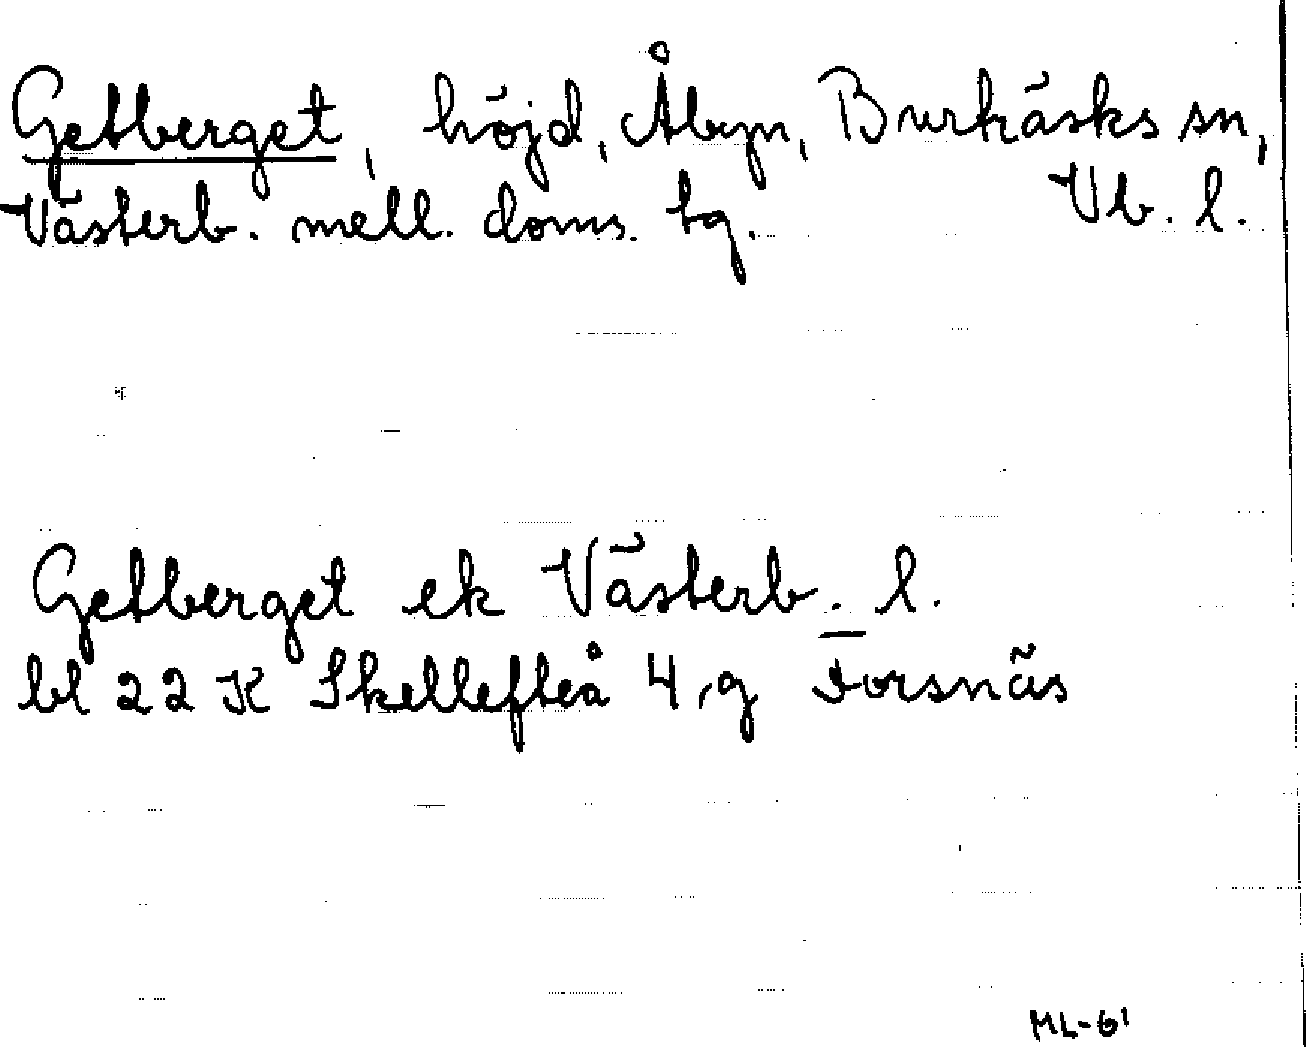 Getberget, höjd, Åbyn, Burträsks sn,
Västerb. mell. doms. tg. Vb. l.
Getberget ek Västerb. l.
bl 22 K Skellefteå 4, g Forsnäs
ML-61